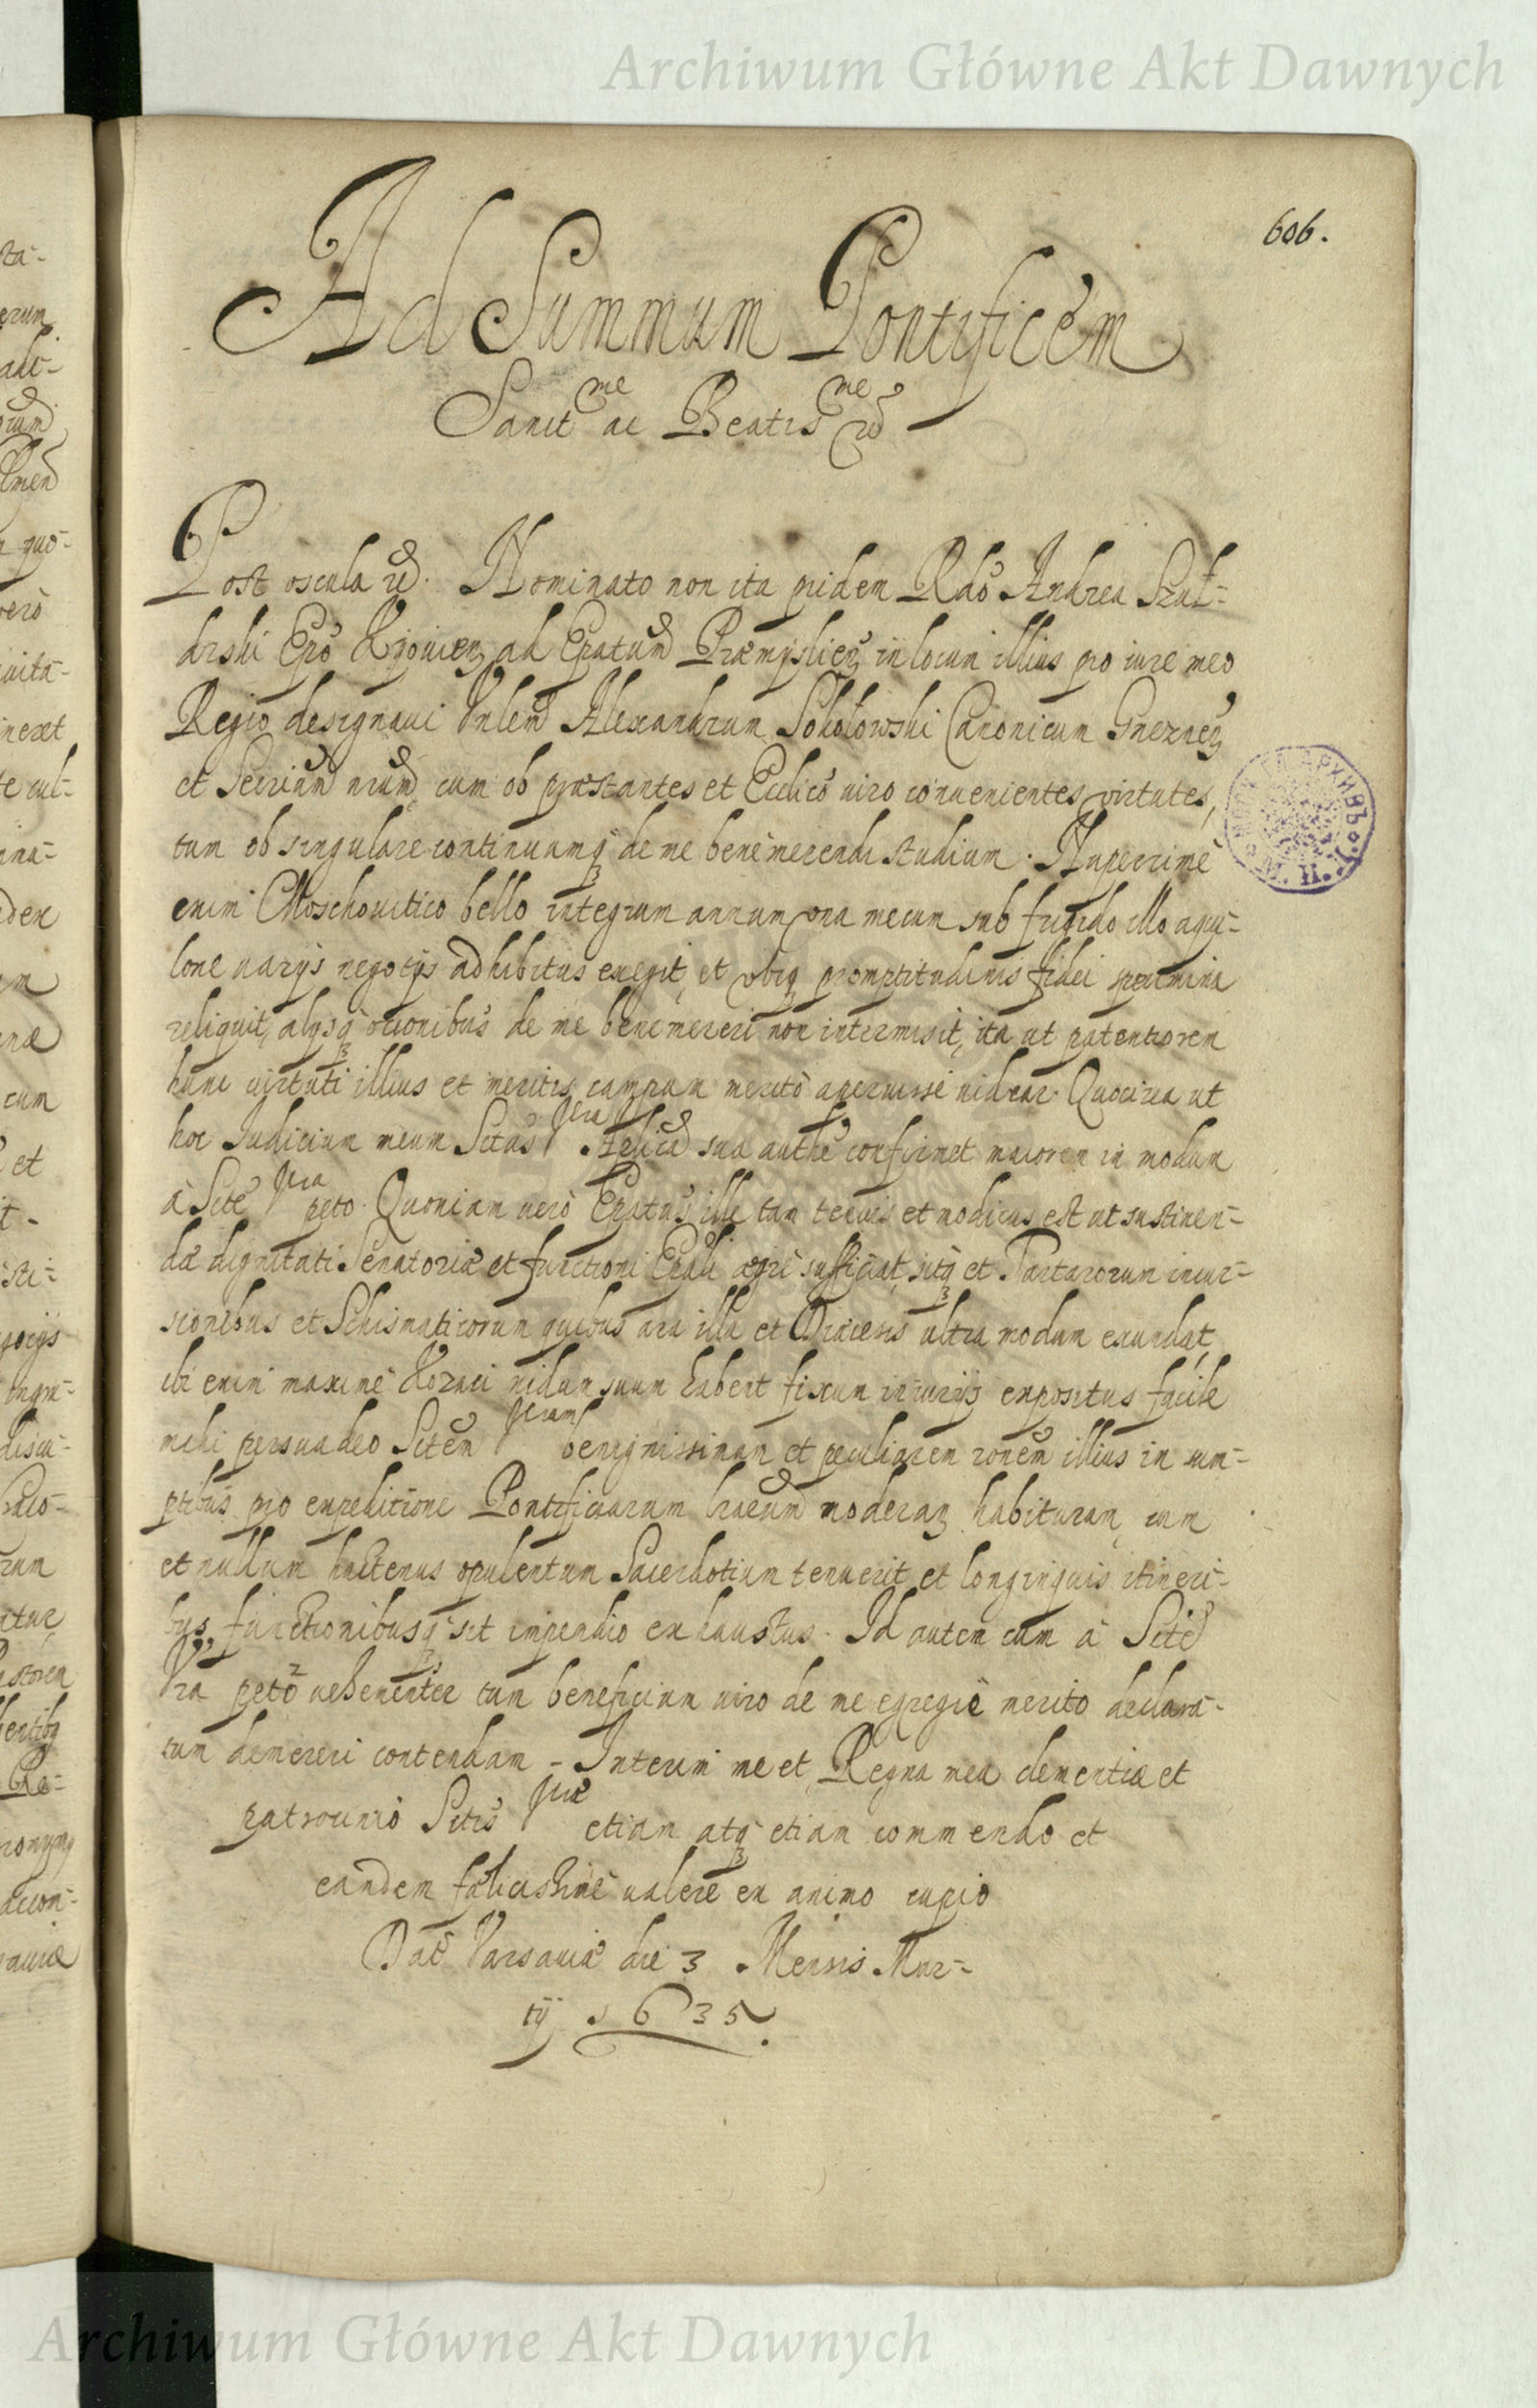 Archiwum Główne Akt Dawnych
606.
Ad Summum Pontificem
Sanct^me ac Beatis^me
Post oscula Nominato non ita pridem Rdo Andrea Szał-
drski Epo Kijouien ad Epatum Præmyslien in locum illius pro iure meo
Regio designaui Vnlem Alexandrum Sokołowski Canonicum Gneznen
et Secrium nrum, cum ob præstantes et Ecclico uiro conuenientes virtutes,
tum ob singulare continuamq de me benè merendi studium. Nuperrimè
enim Moschouitico bello integrum annum vna mecum sub frigido illo aqui-
lone uarijs negotijs adhibitus exegit, et vbiq promptitudinis fidei specimina
reliquit, alijsq occonibus de me bene mereri non intermisit, ita ut patentiorem
hunc uirtuti illius et meritis campum meritò aperuisse uidear. Quocirca ut
hoc Iudicium meum Sctas Vra Aplica sua authe confirmet maiorem in modum
à Scte Vra peto. Quoniam uerò Epatus ille tam tenuis et modicus est ut sustinen-
dæ dignitati Senatoriæ et functioni Epali ægrè sufficiat, sitq et Tartarorum incur-
sionibus et Schismaticorum quibus ora illa et Diæcesis ultra modum exundat,
ibi enim maximè Kozaci nidum suum habent fixum iniurijs expositus facile
mihi persuadeo Sctem Vram benignissimam et peculiarem ronem illius in sum-
ptibus pro expeditione Pontificiarum lrarum moderan habituram, cum
et nullum hactenus opulentum Sacerdotium tenuerit et longinquis itineri-
bus functionibusq sit impendio exhaustus. Id autem cum à Scte
Vra peto uehementer tum beneficium uiro de me egregiè merito declara-
tum demereri contendam - Interim me et Regna mea clementiæ et
patrocinio Sctis Vræ etiam atq etiam commendo et
eandem fælicissimè ualere ex animo cupio
Dat Varsauiæ die 3 Mensis Mar-
tij 1635.
Archiwum Główne Akt Dawnych